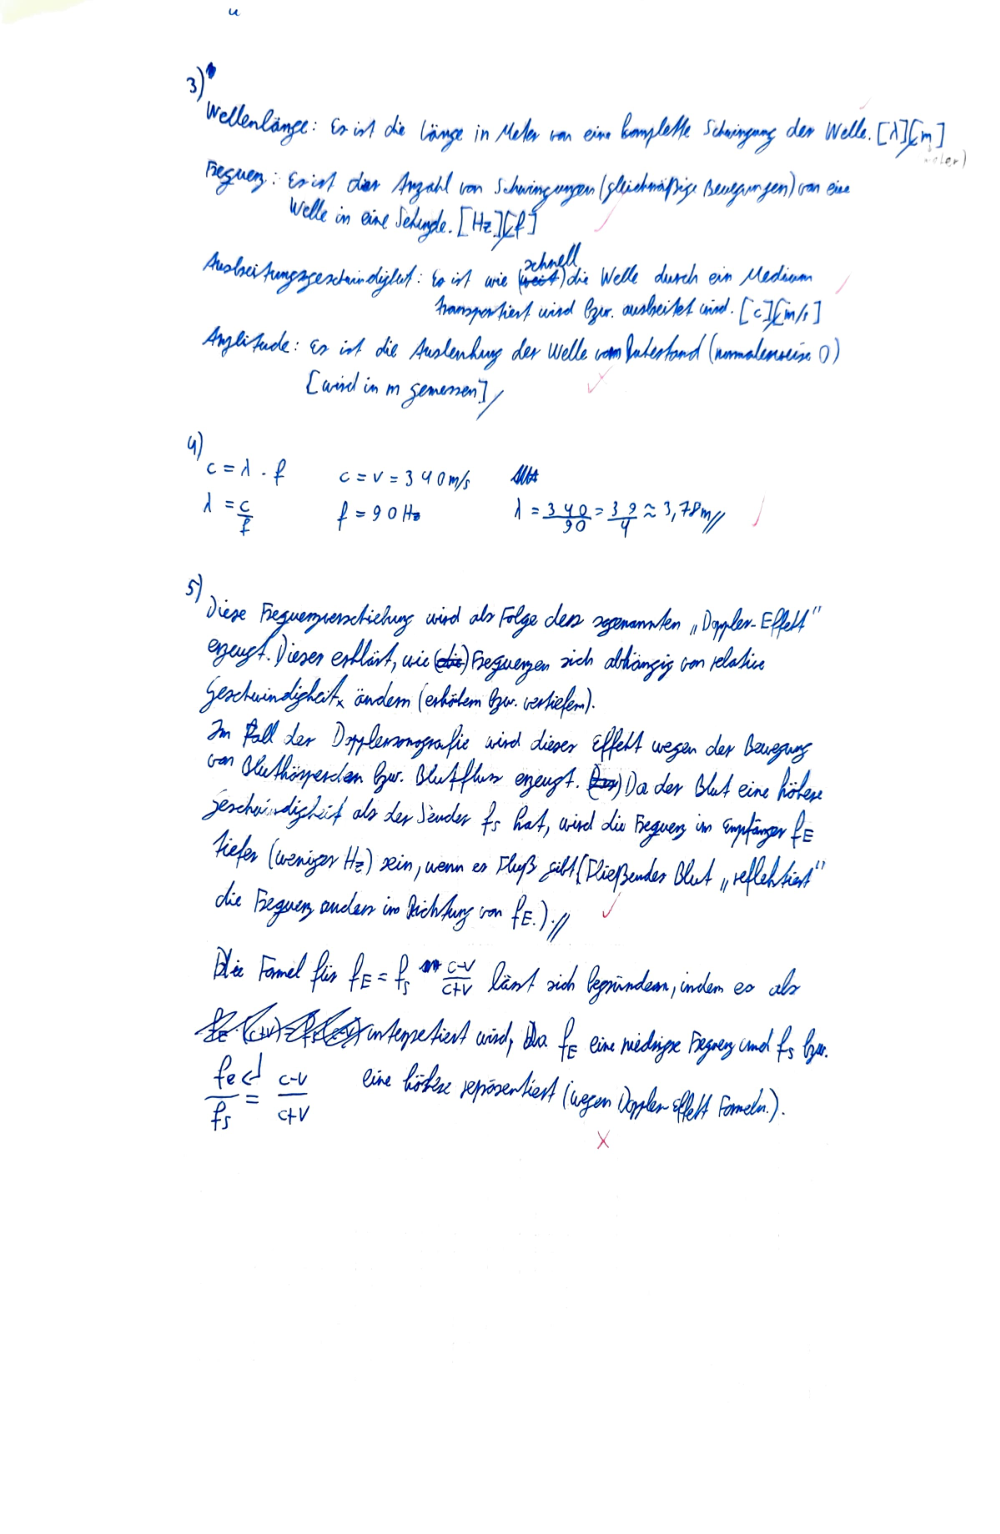 u
3)
Wellenlänge: Es ist die Länge in Meter von eine komplette Schwingung der Welle. [λ][m]
Frequenz: Es ist der Anzahl von Schwingungen (gleichmäßige Bewegungen) von eine
Welle in eine Sekunde. [Hz][f]
schnell
Ausbreitungsgeschwindigkeit: Es ist wie (weit) die Welle durch ein Medium
transportiert wird bzw. ausbreitet wird. [c][m/s]
Amplitude: Es ist die Auslenkung der Welle vom Ruhestand (normalerweise 0)
[wird in m gemessen]
4)
c = λ · f c = v = 340 m/s
λ = c/f f = 90 Hz λ = 340/90 = 39/4 ≈ 3,78 m
5)
Diese Frequenzverschiebung wird als Folge des sogenannten „Doppler-Effekt"
erzeugt. Dieser erklärt, wie (die) Frequenzen sich abhängig von relative
Geschwindigkeit ändern (erhöhem bzw. vertiefem).
Im Fall der Dopplersonografie wird dieser Effekt wegen der Bewegung
von Blutkörperchen bzw. Blutfluss erzeugt. Da der Blut eine höhere
Geschwindigkeit als der Sender fs hat, wird die Frequenz im Empfänger fE
tiefer (weniger Hz) sein, wenn es Fluß gibt (Fließendes Blut „reflektiert"
die Frequenz anders in Richtung von fE.).
Die Formel für fE = fs c-v/c+v lässt sich begründen, indem es als
fE · (c+v) = fs (c-v) interpretiert wird, Da fE eine niedrige Frequenz und fs bzw.
fE/fs = c-v/c+v eine höhere repräsentiert (wegen Doppler-Effekt Formeln.).